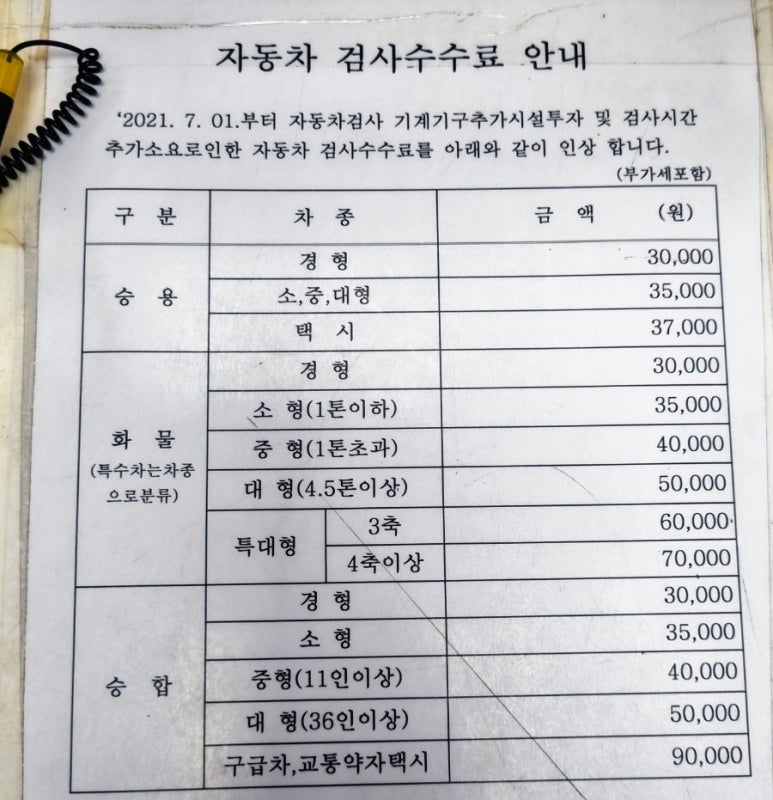 자동차 검사수수료 안내
'2021. 7. 01.부터 자동차검사 기계기구추가시설투자 및 검사시간
추가소요로인한 자동차 검사수수료를 아래와 같이 인상 합니다.
(부가세포함)
구 분 차 종 금 액 (원)
승 용 경 형 30,000
소,중,대형 35,000
택 시 37,000
화 물 (특수차는차종 으로분류) 경 형 30,000
소 형(1톤이하) 35,000
중 형(1톤초과) 40,000
대 형(4.5톤이상) 50,000
특대형 3축 60,000
4축이상 70,000
승 합 경 형 30,000
소 형 35,000
중형(11인이상) 40,000
대 형(36인이상) 50,000
구급차,교통약자택시 90,000